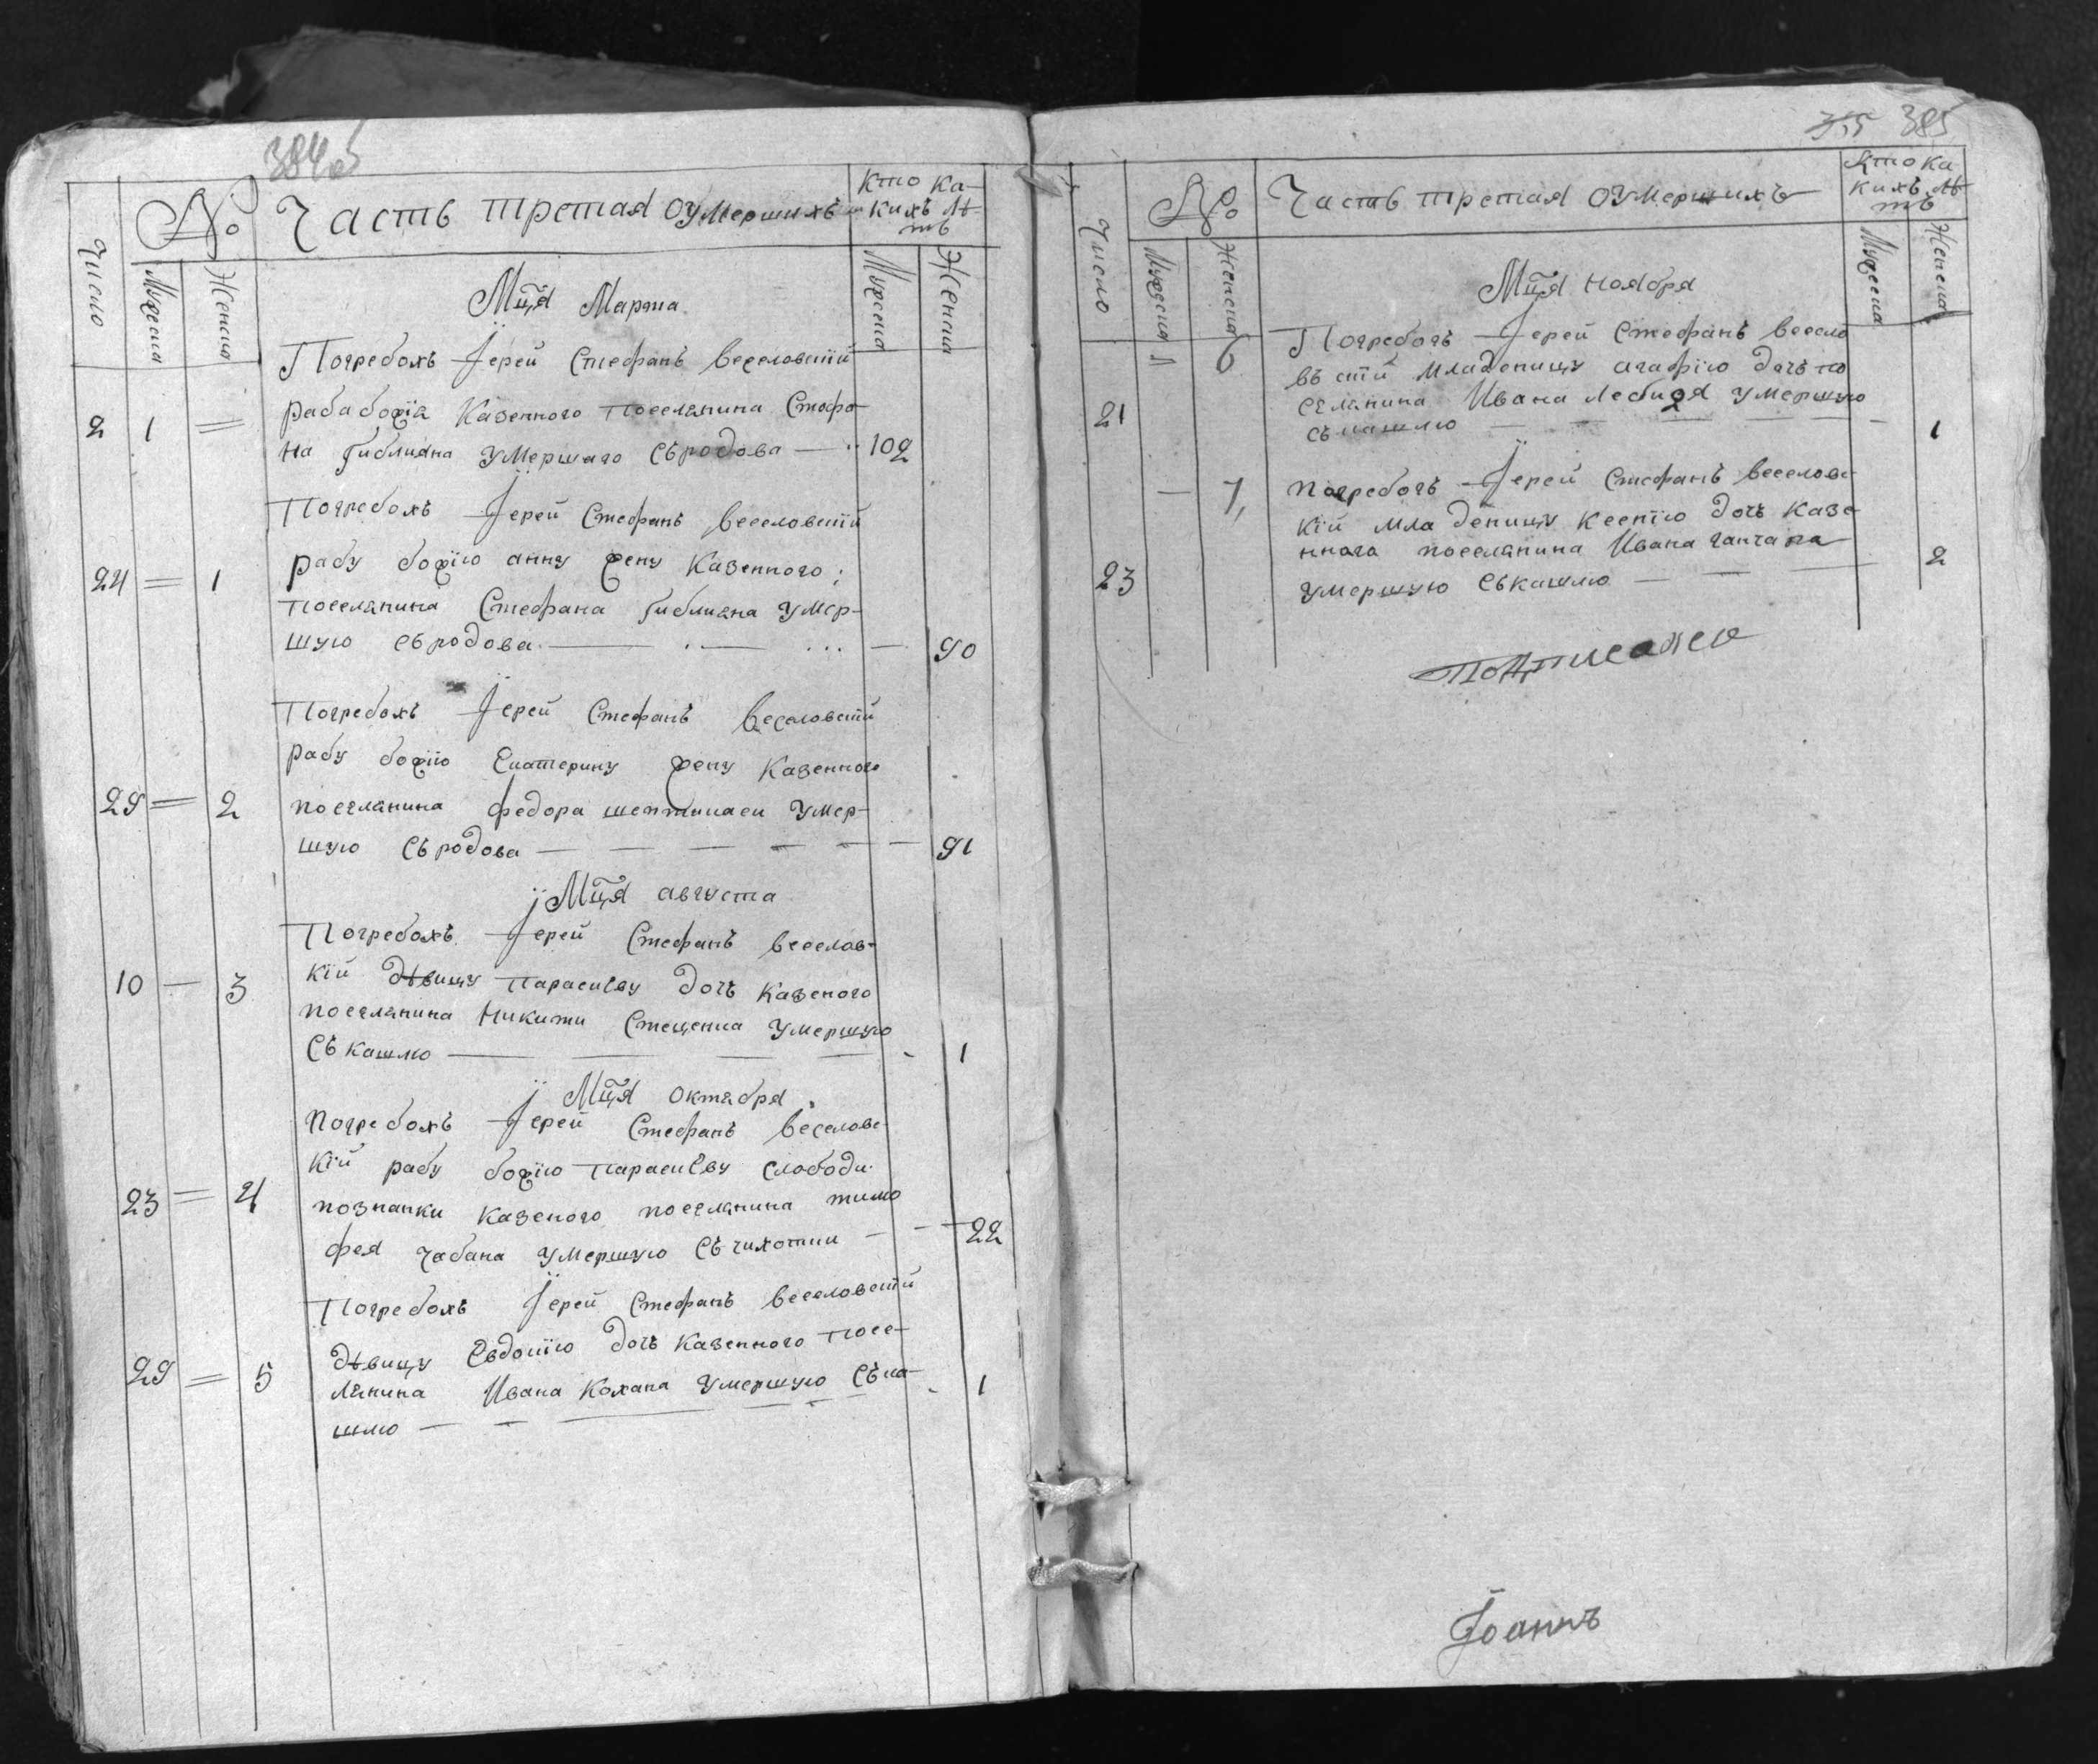 384 об
№
Часть третая оумершихъ
Кто ка-
кихъ лѣ-
тъ
Число
Мужеска
Женска
Мужеска
Женска
Мц̃а Марта
Погребохъ Їерей Стефанъ Веселовскїй
2 1 =
раба божїа казенного поселянина Стефа-
на Гиблиана умершаго съродова — 102
Погребохъ Їерей Стефанъ Веселовскїй
24 = 1
рабу божїю анну жену казенного
поселянина Стефана Гиблиана умер-
шую съродова — 90
Погребохъ Їерей Стефанъ Веселовскїй
рабу божїю Екатерину жену казенного
29 = 2
поселянина федора умер-
шую съродова — 91
Мц̃а августа
Погребохъ Їерей Стефанъ Веселов-
10 — 3
кїй дѣвицу параскеву дочь казеного
поселянина Никити Стеценка умершую
съ кашлю — 1
Мц̃а октабра
Погребохъ Їерей Стефанъ Веселовс-
кїй рабу божїю параскеву слободи
23 = 4
познанки казеного поселянина тимо
фея чабана умершую съчихотки — 22
Погребохъ Їерей Стефанъ Веселовскїй
29 = 5
дѣвицу Евдокїю дочь казенного посе-
лянина Ивана Кохана умершую съка- 1
шлю —
385
№
Часть третая оумершихъ
Кто ка
кихъ лѣ-
тъ
Число
Мужеска
Женска
Мужеска
Женска
Мц̃а ноября
6
Погребохъ Їерей Стефанъ Весело
въскїй младеницу агафїю дочь по
21
селянина Ивана Лебидя умершую
съкашлю — 1
— 7
Погребохъ Їерей Стефанъ Веселовс-
кїй младеницу Ксенїю дочь казе-
нного поселянина Ивана ганчара
23
умершую съкашлю — 2
Їоаннъ